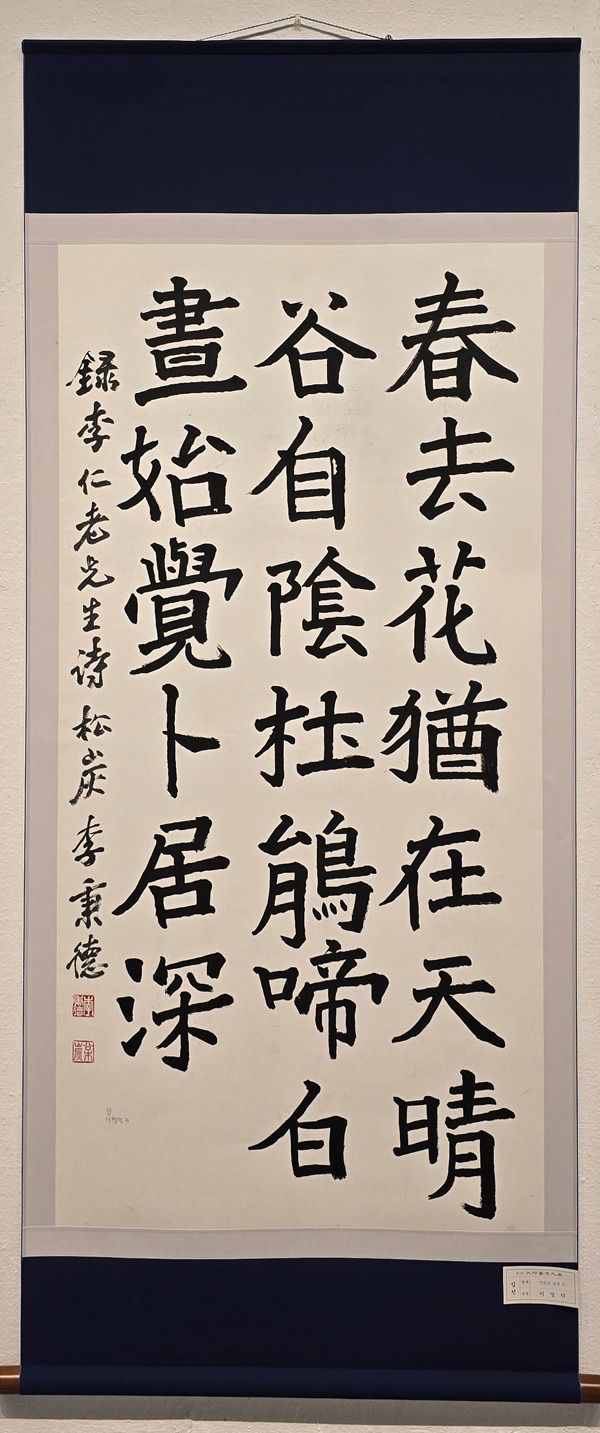 春去花猶在天晴
谷自陰杜鵑啼白
晝始覺卜居深
錄李仁老先生詩 松炭 李秉德
입선